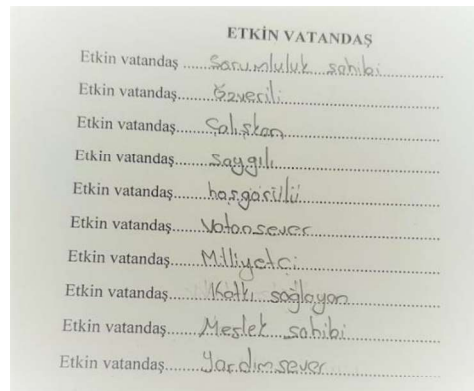 ETKİN VATANDAŞ
Etkin vatandaş ...... Sorumluluk sahibi
Etkin vatandaş...... özverili
Etkin vatandaş...... Çalışkan
Etkin vatandaş...... saygılı
Etkin vatandaş...... hoşgörülü
Etkin vatandaş...... Vatansever
Etkin vatandaş...... Milliyetçi
Etkin vatandaş...... Katkı sağlayan
Etkin vatandaş...... Meslek sahibi
Etkin vatandaş...... Yardımsever